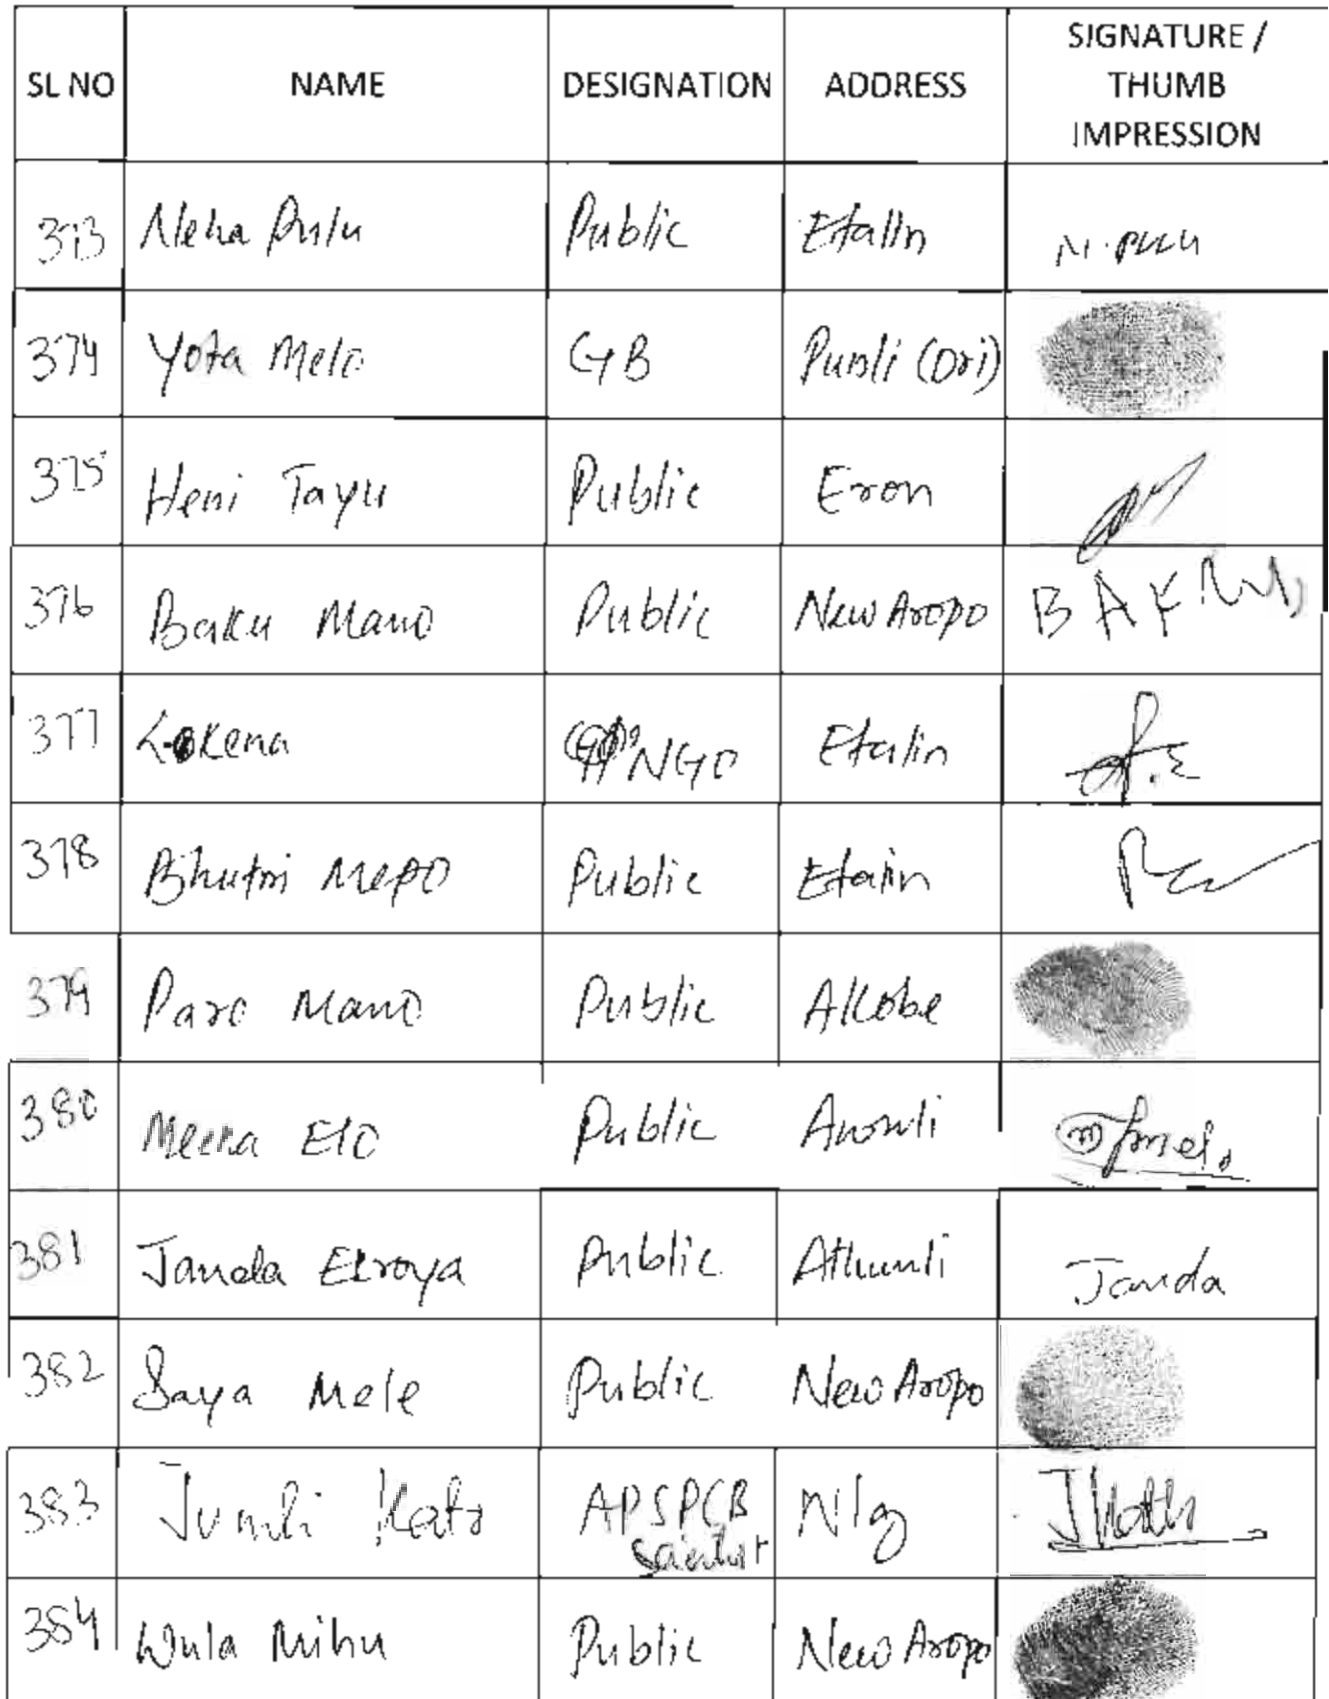 SL NO NAME DESIGNATION ADDRESS SIGNATURE /
THUMB
IMPRESSION
373 Neha Pulu Public Etalin N. Pulu
374 Yota Melo GB Punli (Dri)
375 Heni Tayu Public Eron
376 Baku Mano Public New Aropo BAKU
377 Lokena NGO Etalin
378 Mepo Public Etalin
379 Paro Mano Public Akobe
380 Meena Elo Public
381 Janda Public Athunli Janda
382 Saya Mele Public New Aropo
383 Jumli Kato APSPCB Nlg
Scientist
384 Wula Mihu Public New Aropo